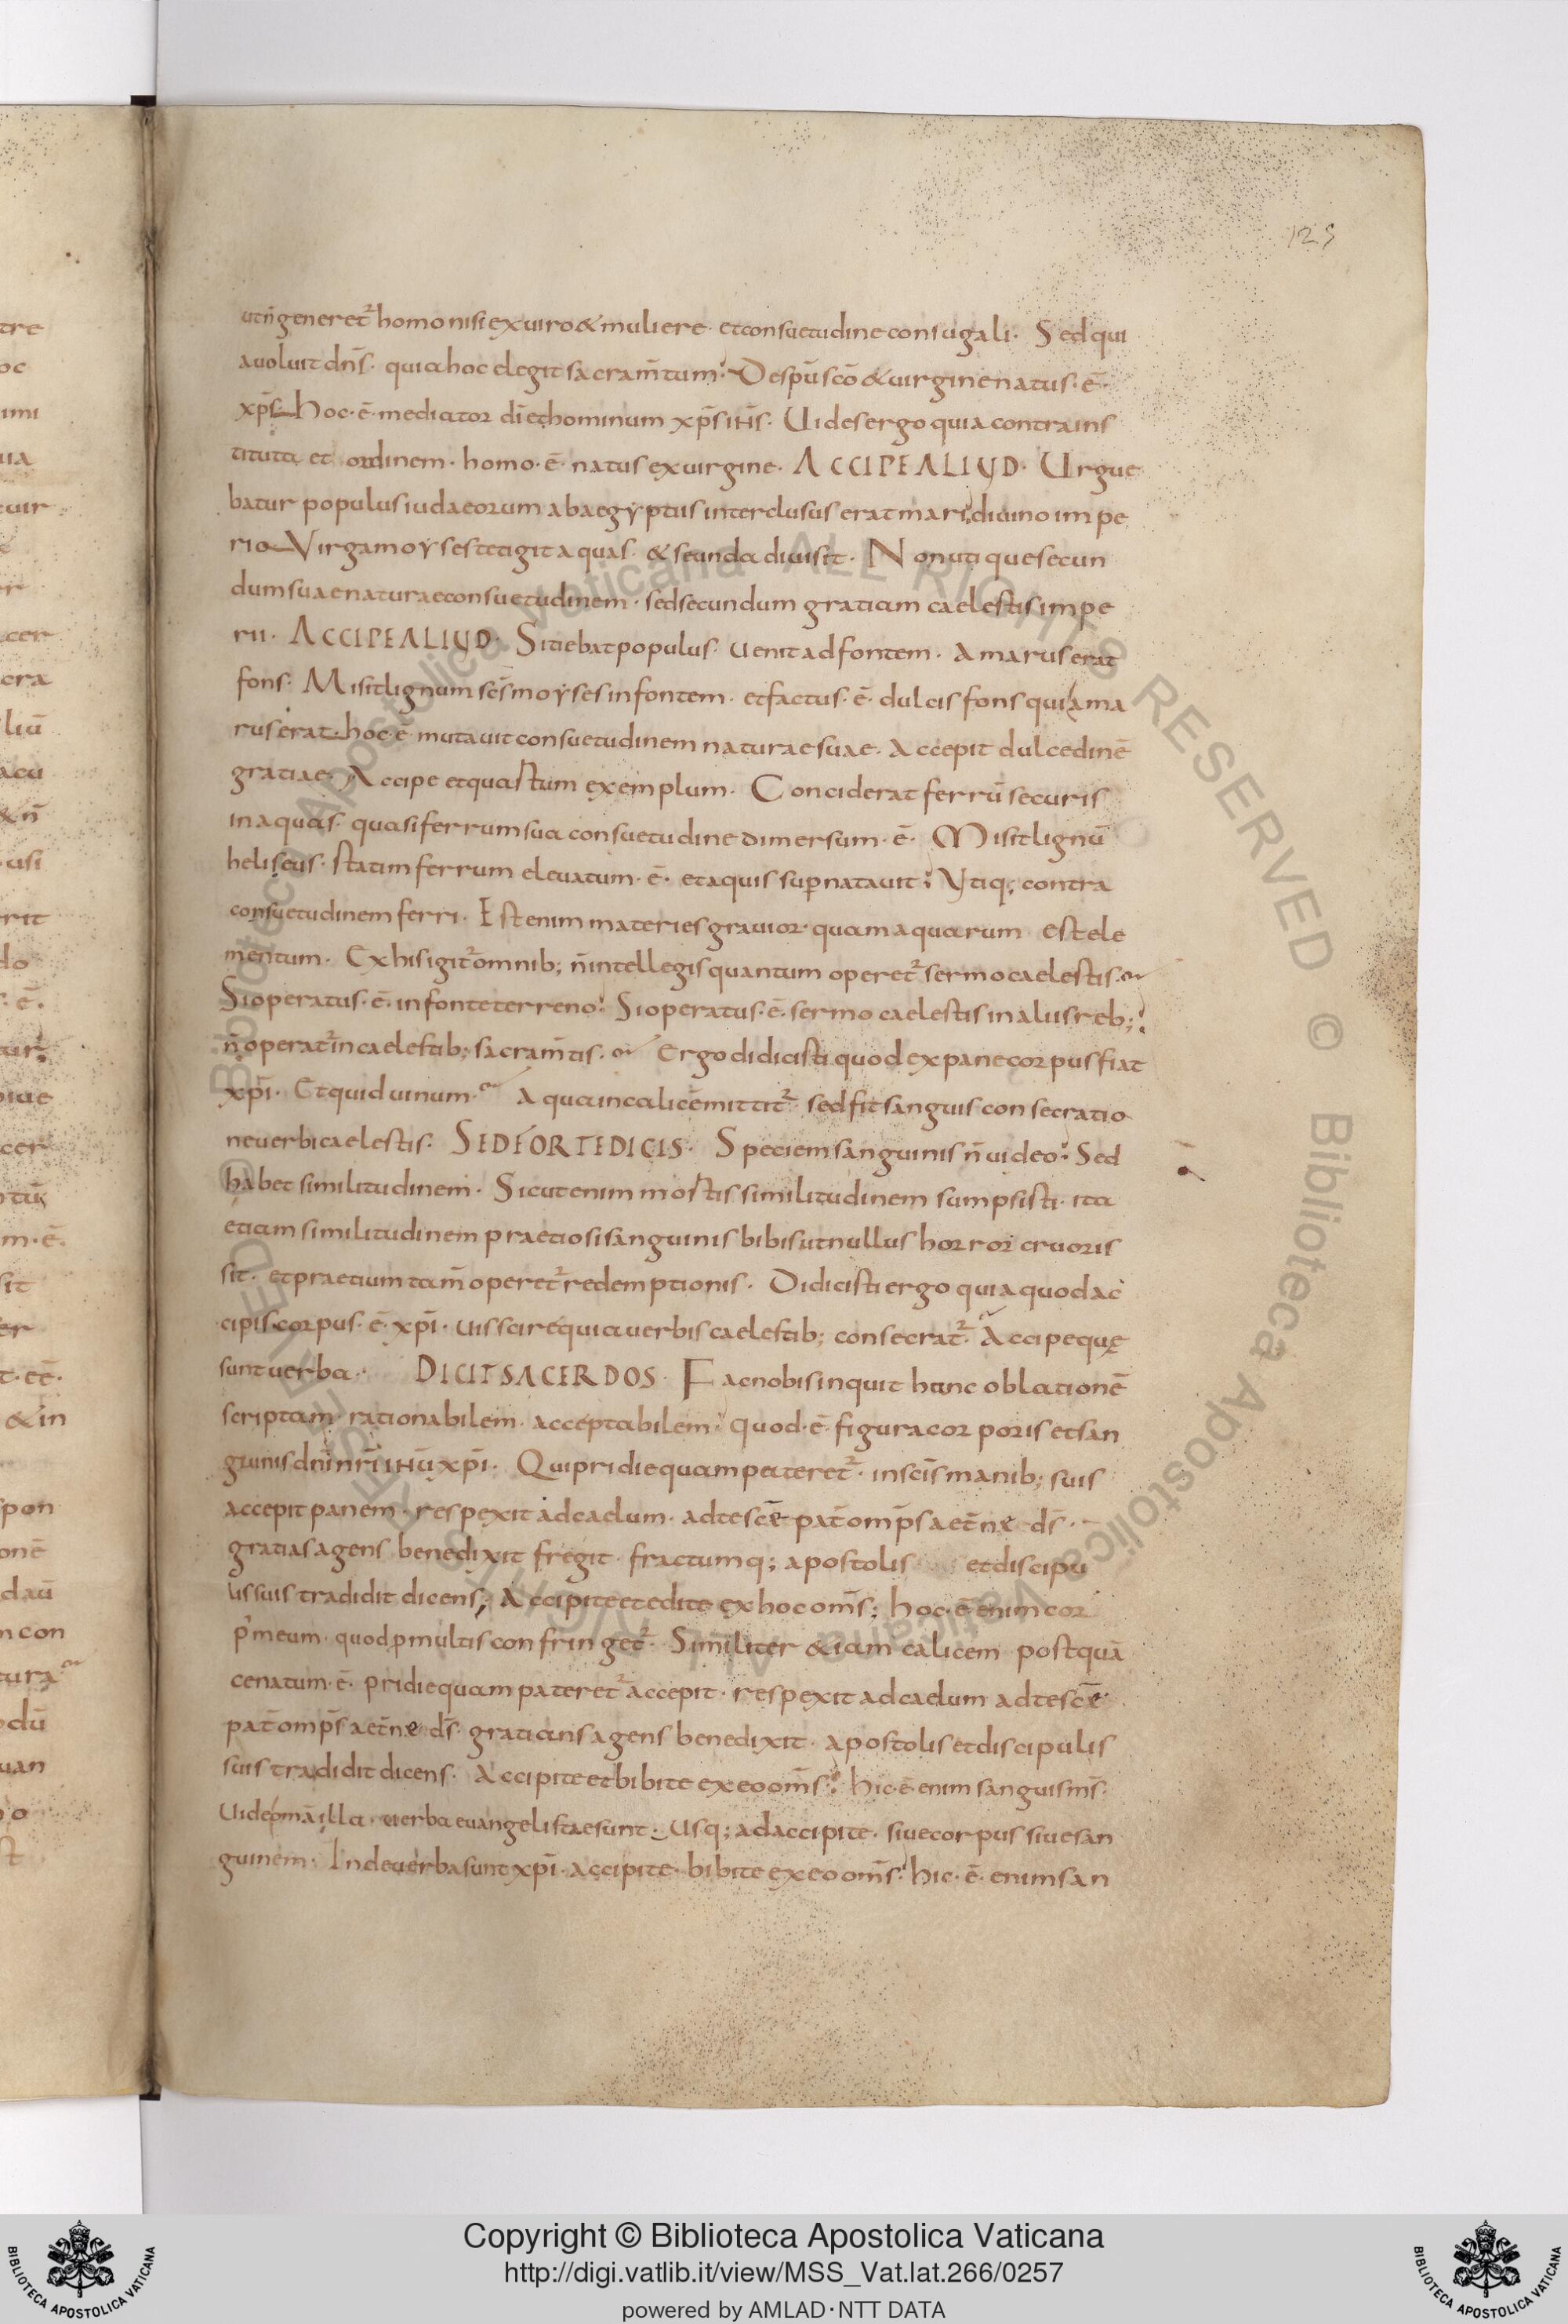 125
utn̄ generet̉ homo nisi ex uiro & muliere · et consuetudine coniugali · Sed qui
a uoluit dn̄s · quia hoc elegit sacram̄tum · De sp̄u sc̄o & uirgine natus · ē ·
xp̄s hoc · ē · mediator dī et hominum xp̄s ih̄s · Uides ergo quia contra ins
tituta et ordinem · homo · ē · natus ex uirgine · ACCIPE ALIUD · Urgue
batur populus iudaeorum ab aegyptiis interclusus erat mari diuino impe
rio Virga moyses tetigit aquas · & se unda diuisit · Non utique secun
dum suae naturae consuetudinem · sed secundum gratiam caelestis impe
rii · ACCIPE ALIUD · Sitiebat populus · uenit ad fontem · Amarus erat
fons · Misit lignum sc̄s moyses in fontem · et factus · ē · dulcis fons qui ama
rus erat · hoc · ē · mutauit consuetudinem naturae suae · Accepit dulcedinē
gratiae · Accipe et quartum exemplum · Conciderat ferrū securis
in aquas · quasi ferrum sua consuetudine dimersum · ē · Misit lignū
heliseus · statim ferrum eleuatum · ē · et aquis sup̄natauit ; Utiq; contra
consuetudinem ferri · Est enim materies grauior · quam aquarum est ele
mentum · Ex his igit̉ omnib; n̄ intellegis quantum operet̉ sermo caelestis ·
Si operatus · ē · in fonte terreno · Si operatus · ē · sermo caelestis in aliis reb; ·
n̄ operat̉ in caelestib; sacram̄tis · Ergo didicisti quod ex pane corpus fiat
xp̄i · Et quid uinum · Aqua in calicē mittit̉ · sed fit sanguis consecratio
ne uerbi caelestis · SED FORTE DICIS · Speciem sanguinis n̄ uideo · Sed
habet similitudinem · Sicut enim mortis similitudinem sumpsisti · ita
etiam similitudinem praetiosi sanguinis bibis ut nullus horror cruoris
sit · et praetium tam̄ operet̉ redemptionis · Didicisti ergo quia quod ac
cipis corpus · ē · xp̄i · uis scire quia uerbis caelestib; consecrat̉ · Accipe quę
sunt uerba · DICIT SACERDOS · Fac nobis inquit hanc oblationē
scriptam · rationabilem · acceptabilem · quod · ē · figura corporis et san
guinis dn̄i nr̄i ih̄u xp̄i · Qui pridie quam pateret̉ · in sc̄is manib; suis
accepit panem · respexit ad caelum · ad te sc̄e pat̄ omp̄s aet̄ne ds̄ ·
gratias agens benedixit fregit · fractumq; apostolis et discipu
lis suis tradidit dicens, Accipite et edite ex hoc om̄s; hoc · ē · enim cor
p' meum · quod p̄ multis confringet̉ · Similiter & iam calicem postquā
cenatum · ē · pridie quam pateret̉ accepit · respexit ad caelum ad te sc̄e
pat̄ omp̄s aet̄ne ds̄ · gratians agens benedixit · apostolis et discipulis
suis tradidit dicens · Accipite et bibite ex eo om̄s · hic · ē · enim sanguis ms̄ ·
Uide om̄a illa · uerba euangelistae sunt · Usq; ad accipite · siue corpus siue san
guinem · Inde uerba sunt xp̄i · accipite · bibite ex eo om̄s · hic · ē · enim san
Copyright © Biblioteca Apostolica Vaticana
http://digi.vatlib.it/view/MSS_Vat.lat.266/0257
powered by AMLAD·NTT DATA